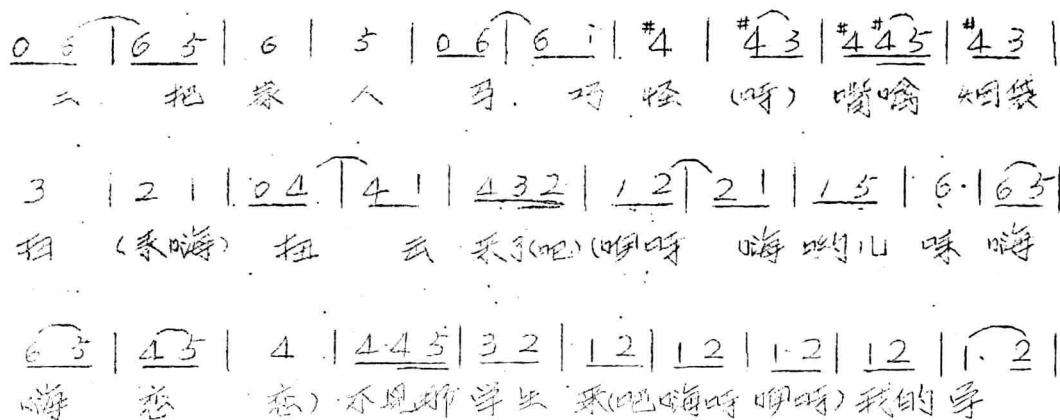 0 6 | 6 5 | 6 | 5 | 0 6 | 6 i | #4 | #4 3 | #4 #4 5 | #4 3 |
二 把 家 人 马. 巧 怪 (呀) 嘴噙 烟袋
3 | 2 1 | 0 4 | 4 1 | 4 3 2 | 1 2 | 2 1 | 1 5 | 6. | 6 5 |
扭 (来嗨) 扭 云 来了(吧)(咿呀 嗨 哟儿 咪 嗨
6 5 | 4 5 | 4 | 4·4 5 | 3 2 | 1 2 | 1 2 | 1·2 | 1 2 | 1. 2 |
嗨 恋 恋) 不见那 学生 来(吧嗨呀 咿呀) 我的 学